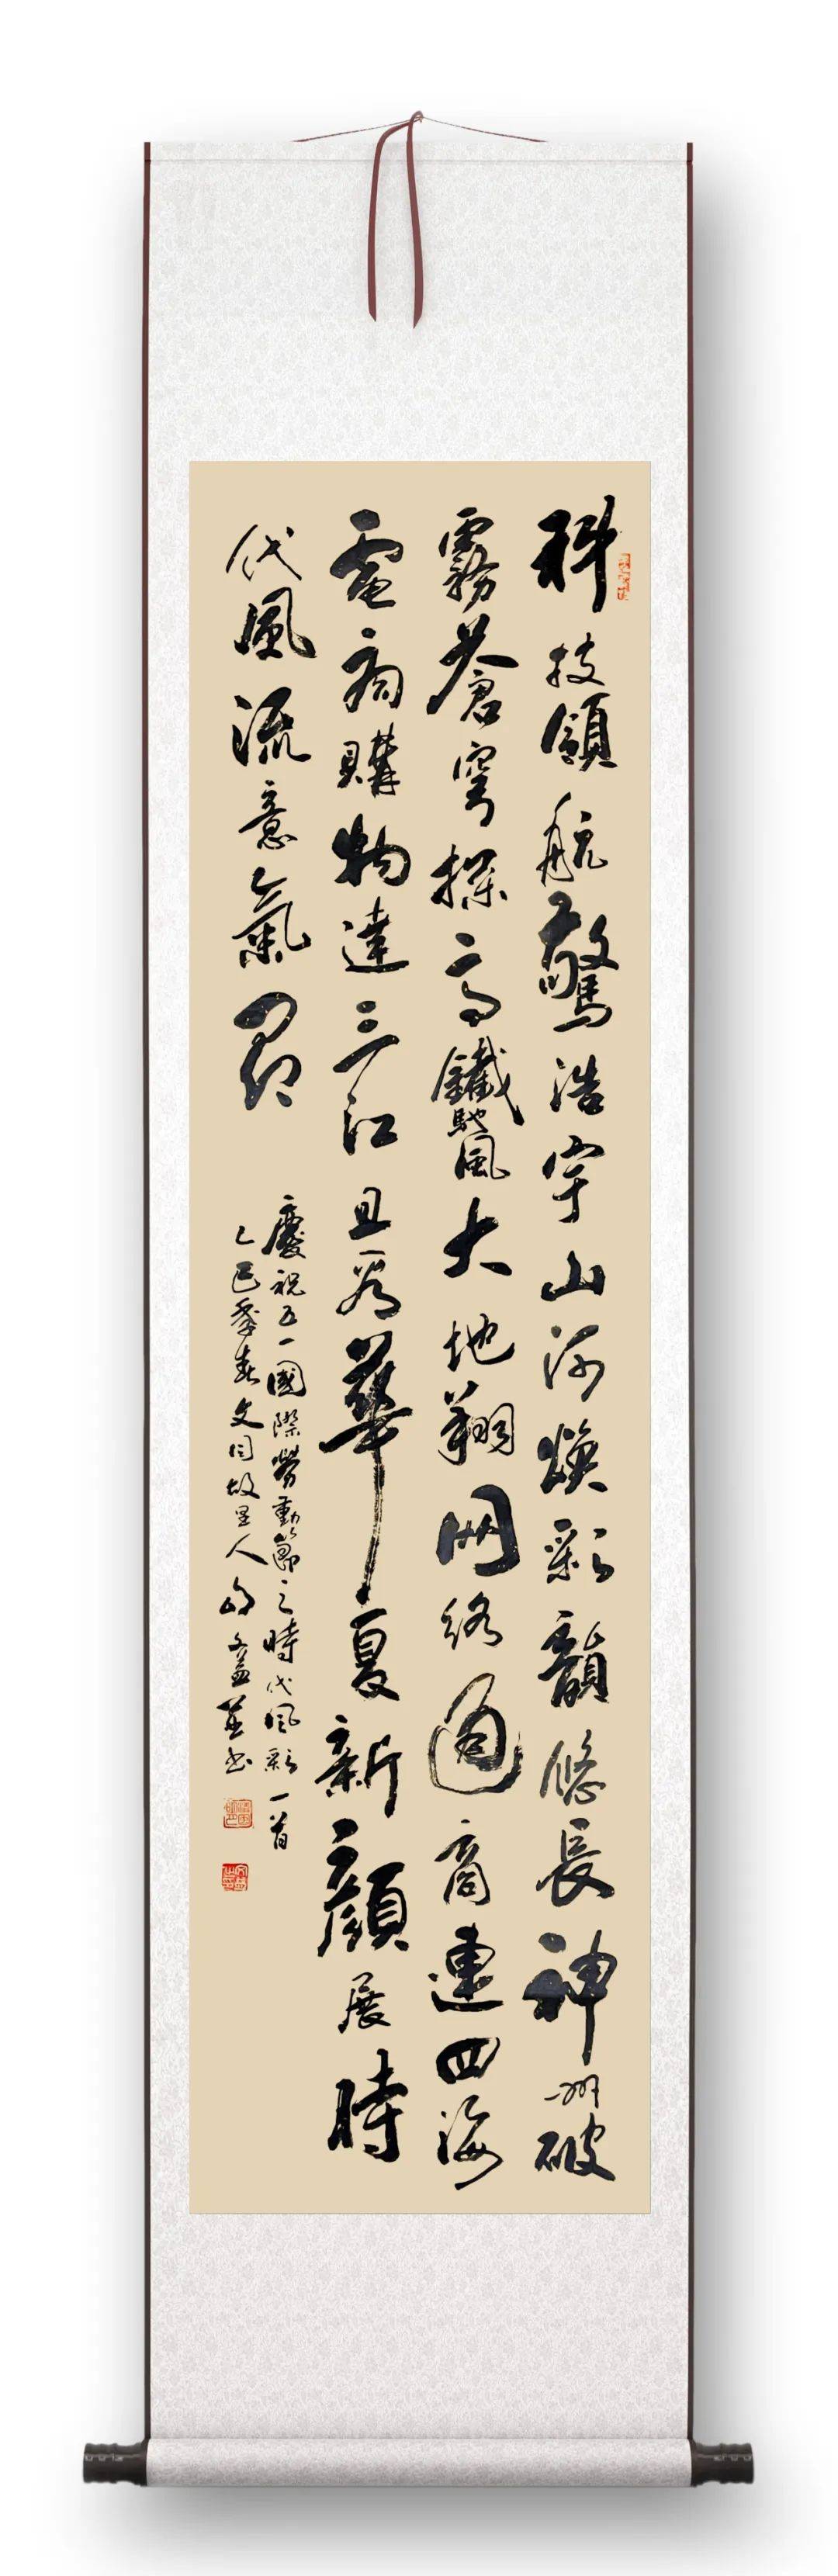 科技領航驚浩宇山河煥彩韻悠長神州破
霧蒼穹探高鐵馳風大地翔网络通商連四海
電商購物達三江且看華夏新顔展時
代風流意氣昂
慶祝五一國際勞動節之時代風彩一首
乙巳季春文同故里人